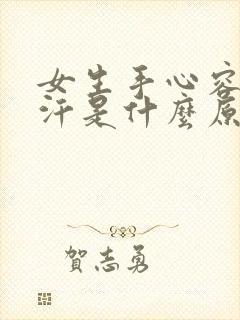 女生手心容
汗是什麼原
賀志勇